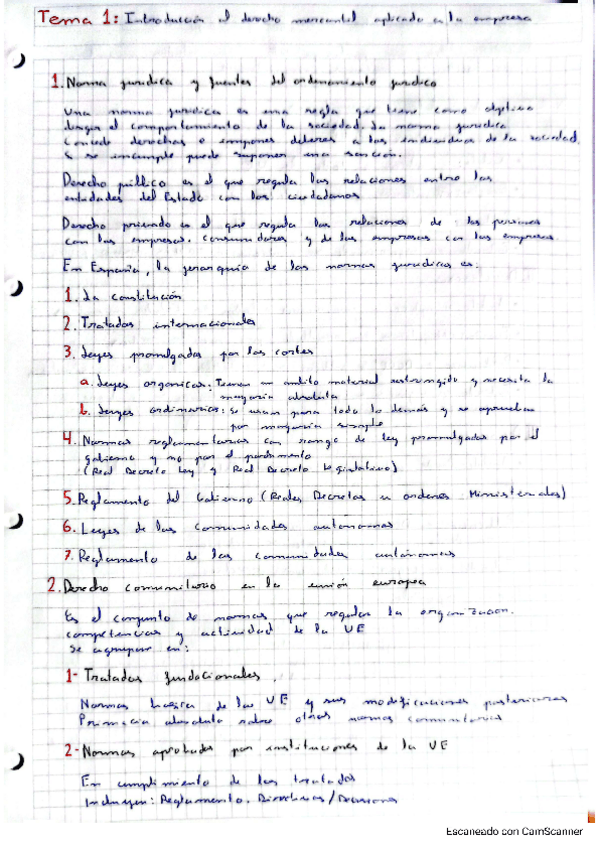 Tema 1: Introducción al derecho mercantil aplicado a la empresa
1. Norma jurídica y fuentes del ordenamiento jurídico
Una norma jurídica es una regla que tiene como objetivo
dirigir el comportamiento de la sociedad. La norma jurídica
concede derechos e impone deberes a los individuos de la sociedad.
Si se incumple puede suponer una sanción.
Derecho público es el que regula las relaciones entre las
entidades del Estado con los ciudadanos
Derecho privado es el que regula las relaciones de las personas
con las empresas, consumidores y de las empresas con las empresas
En España, la jerarquía de las normas jurídicas es:
1. La constitución
2. Tratados internacionales
3. Leyes promulgadas por las cortes
a. Leyes orgánicas: Tienen un ámbito material restringido y necesita la
mayoría absoluta
b. Leyes ordinarias: se usan para todo lo demás y se aprueban
por mayoría simple
4. Normas reglamentarias con rango de ley promulgadas por el
gobierno y no por el parlamento
(Real Decreto Ley y Real Decreto Legislativo)
5. Reglamento del Gobierno (Reales Decretos u ordenes Ministeriales)
6. Leyes de las comunidades autonomas
7. Reglamento de las comunidades autónomas
2. Derecho comunitario en la unión europea
Es el conjunto de normas que regulan la organización,
competencias y actividad de la UE
Se agrupan en:
1- Tratados fundacionales.
Normas básica de la UE y sus modificaciones posteriores
Primacia absoluta sobre otras normas comunitarias
2- Normas aprobadas por instituciones de la UE
En cumplimiento de los tratados
Incluyen: Reglamento, Directivas / Decisiones
Escaneado con CamScanner